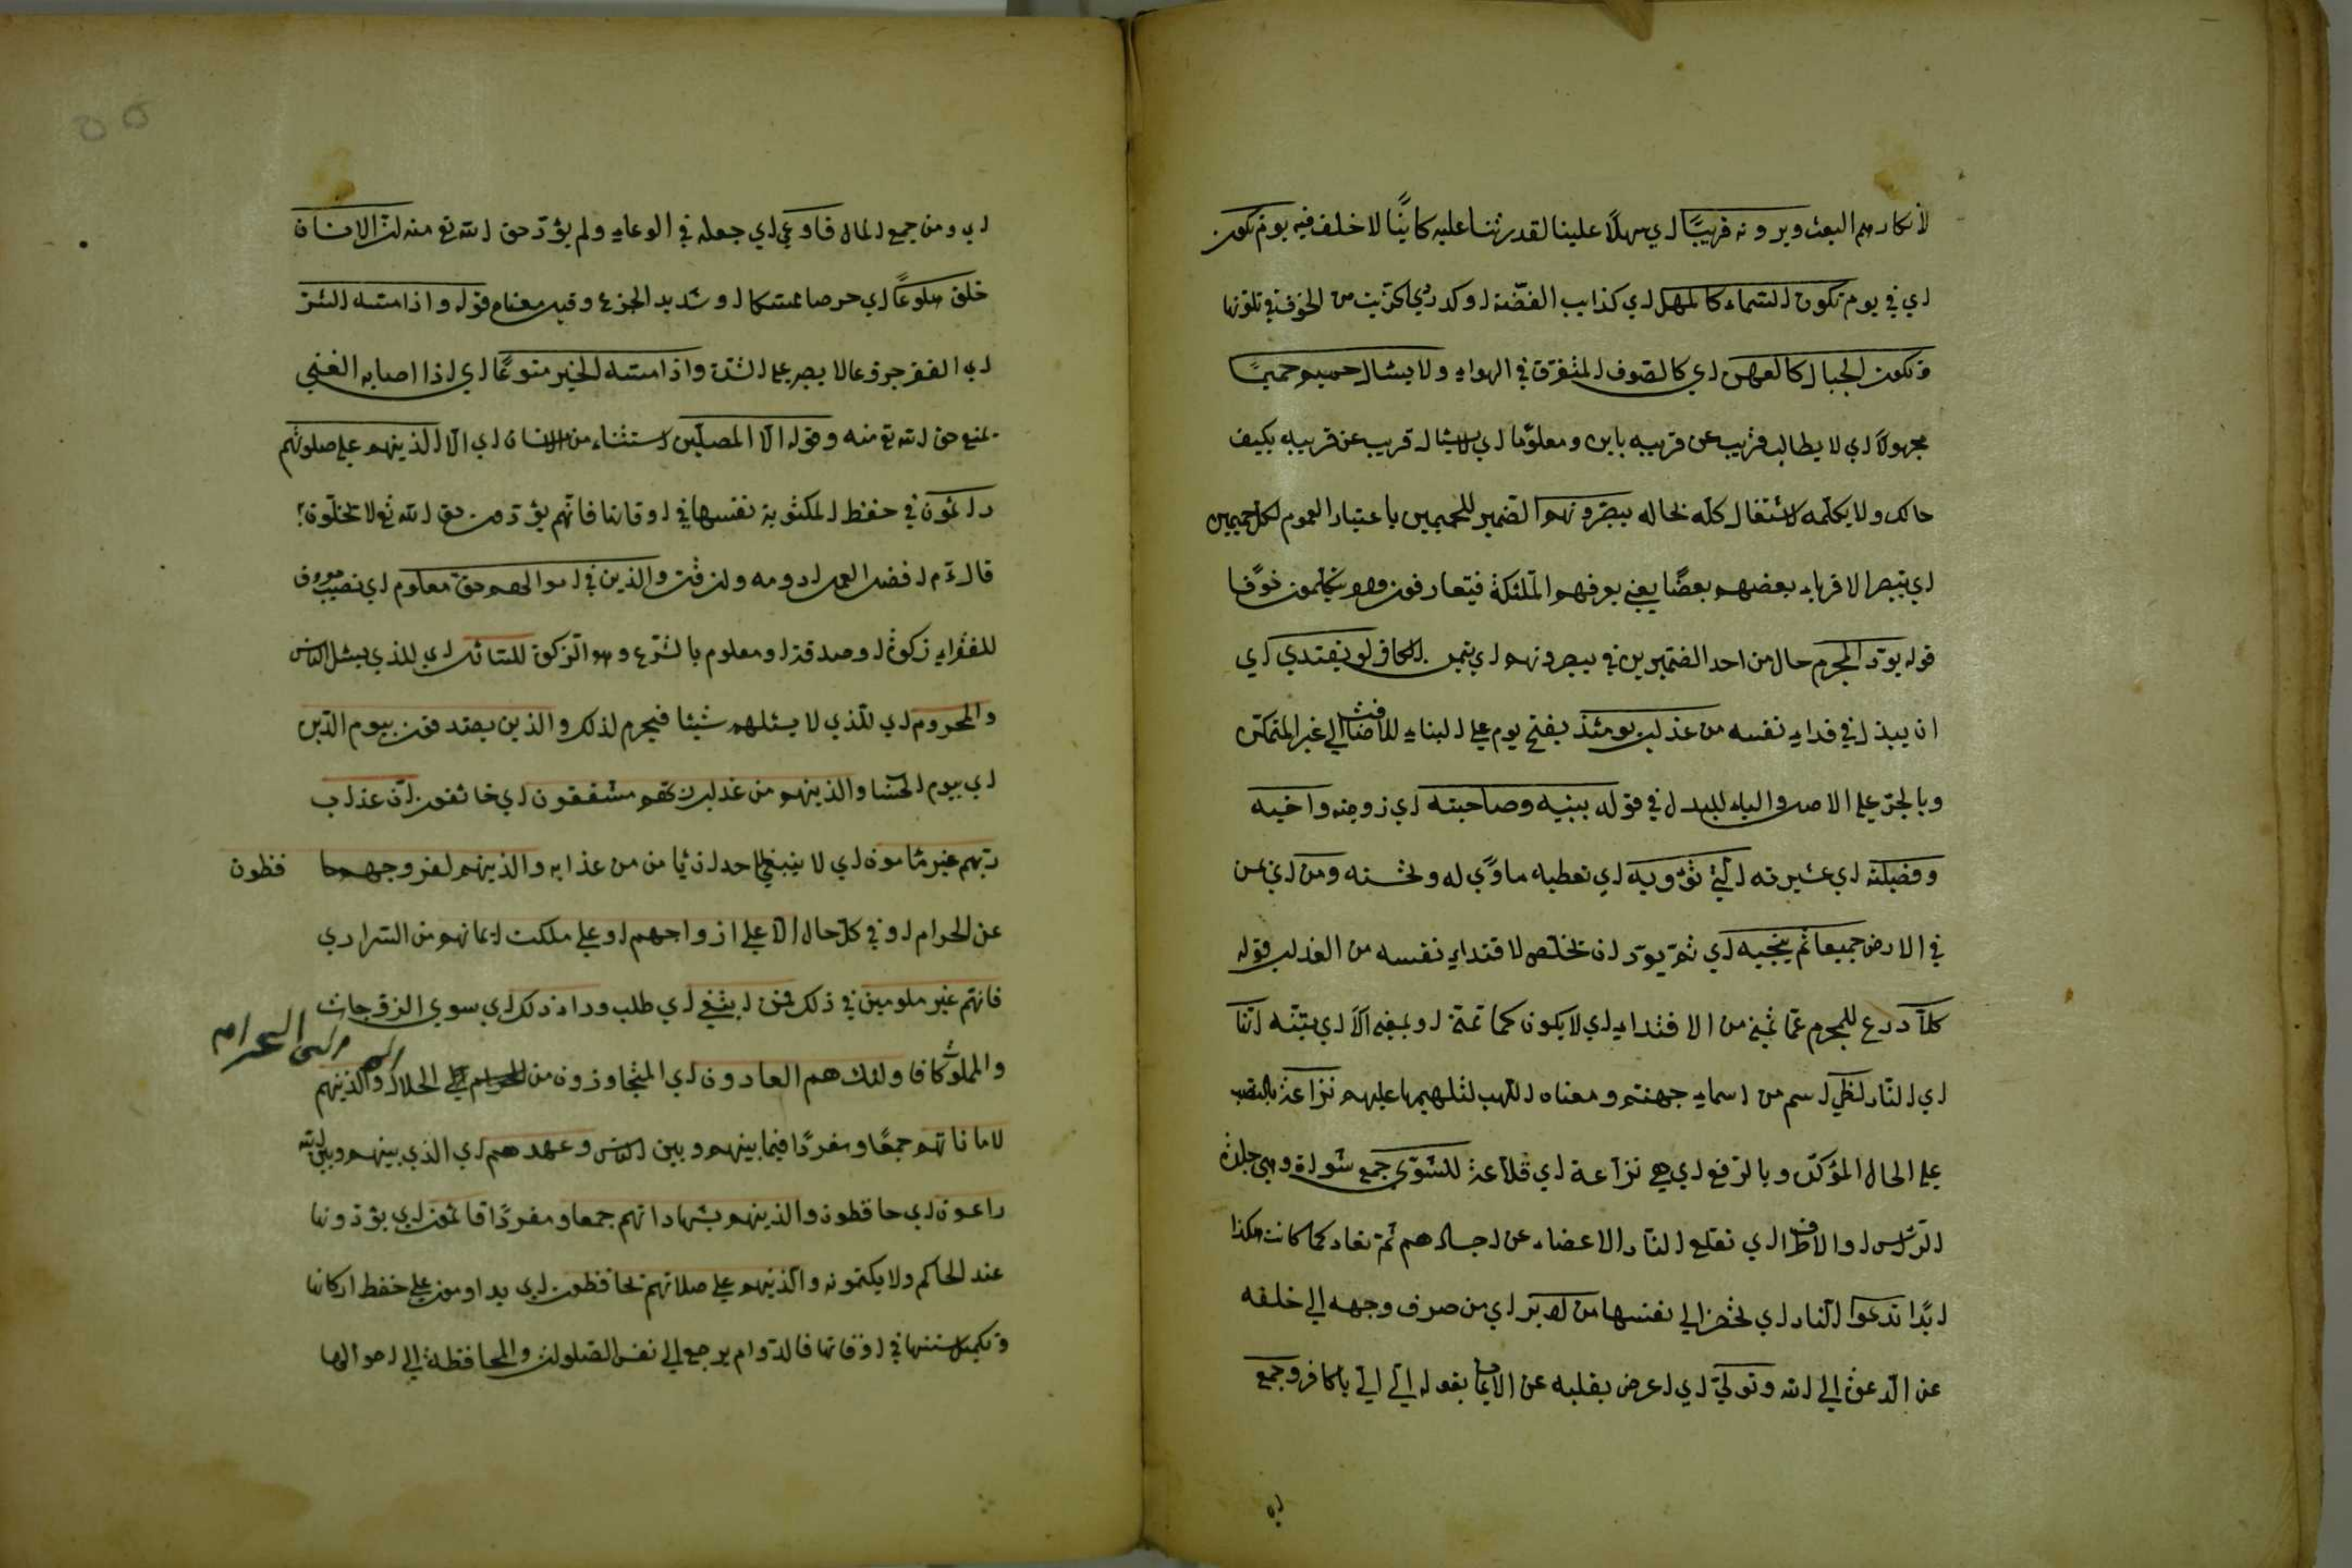 لانكارهم البعث ويرونه قريبًا اي سهلًا علينا لقدرتنا عليه كاينًا لا خلف فيه يوم تكون
اي في يوم تكون السماء كالمهل اي كذايب الفضة او كدردي الزيت من الخوف في تلونها
وتكون الجبال كالعهن اي كالصوف المتفرق في الهواء ولا يسئال حميم حميمًا
مجهولًا اي لا يطالب قريب عن قريبه باين ومعلومًا اي لا يسئال قريب عن قريبه بكيف
حالك ولا يكلمه لاشتغال كله بحاله يبصرونهم الضمير للحميمين باعتبار العموم لكل حميمين
اي يتبصر الاقرباء بعضهم بعضًا يعني يعرفهم الملئكة فيتعارفون وهم يتكلمون خوفًا
قوله يود المجرم حال من احد الضميرين في يبصرونهم اي يتمنى الكافر لو يفتدي اي
ان يبذل في فداء نفسه من عذاب يومئذ بفتح يوم على البناء للاضافة الى غير المتمكن
وبالجر على الاصل والباء للبدل في قوله ببنيه وصاحبته اي زوجته واخيه
وفصيلته اي عشيرته التي تؤويه اي تعطيه ماوًى له ومن اي من
في الارض جميعا ثم ينجيه اي ثم يود ان تخلص لافتداء نفسه من العذاب قوله
كلا ردع للمجرم عما تمنى من الافتداء اي لا يكون كما تمنى او بمعنى الا اي بتنبه انها
اي النار لظى اسم من اسماء جهنم ومعناه اللهب لتلهبها عليهم نزاعة بالنصب
على الحال المؤكد وبالرفع اي هي نزاعة اي قلاعة للشوى جمع شواة وهي جلدة
الراس او الاطراف اي تقلع النار الاعضاء عن اجسادهم ثم تعاد كما كانت هكذا
ابدًا تدعوا النار اي تحضر الى نفسها من ادبر اي من صرف وجهه الى خلفه
عن الدعوة الى الله وتولى اي اعرض بقلبه عن الايمان بقوله الي الي يا كافر وجمع
اي ومن جمع المال فاوعى اي جعله في الوعاء ولم يؤد حق الله تع منه ان الانسان
خلق هلوعًا اي حرصا ممسكا او شديد الجزع وقيل معناه قوله واذا مسه الشر
اي الفقر جزوعا لا يصبر على الشدة واذا مسه الخير منوعًا اي اذا اصابه الغنى
يمنع حق الله تع منه وقوله الا المصلين استثناء من الانسان اي الا الذينهم على صلوتهم
دائمون في حفظ المكتوبة نفسها في اوقاتها فانهم يؤدون حق الله تع لا يخلون
قال ءم افضل العمل ادومه وان قلت والذين في اموالهم حق معلوم اي نصيب معروف
للفقراء زكوة او صدقة او معلوم بالشرع وهو الزكوة للسائل اي للذي يسئل الناس
والمحروم اي للذي لا يسئلهم شيئا فيحرم لذلك والذين يصدقون بيوم الدين
اي بيوم الحساب والذينهم من عذاب ربهم مشفقون اي خائفون ان عذاب
ربهم غير مامون اي لا ينبغي لاحد ان يامن من عذابه والذينهم لفروجهم حا فظون
عن الحرام او في كل حال الا على ازواجهم او على ملكت ايمانهم من السراري
فانهم غير ملومين في ذلك فمن ابتغى اي طلب وراء ذلك اي سوى الزوجات
والمملوكات فاولئك هم العادون اي المتجاوزون من الحلال والذينهم
الى الحرام
لاماناتهم جمعًا ومفردًا فيما بينهم وبين الناس وعهدهم اي الذي بينهم وبين الله
راعون اي حافظون والذينهم بشهاداتهم جمعا ومفردًا قائمون اي يؤدونها
عند الحاكم ولا يكتمونه والذينهم على صلاتهم يحافظون اي يداومون على حفظ اركانها
وتكميل سننها في اوقاتها فالدوام يرجع الى نفس الصلوات والمحافظة الى احوالها